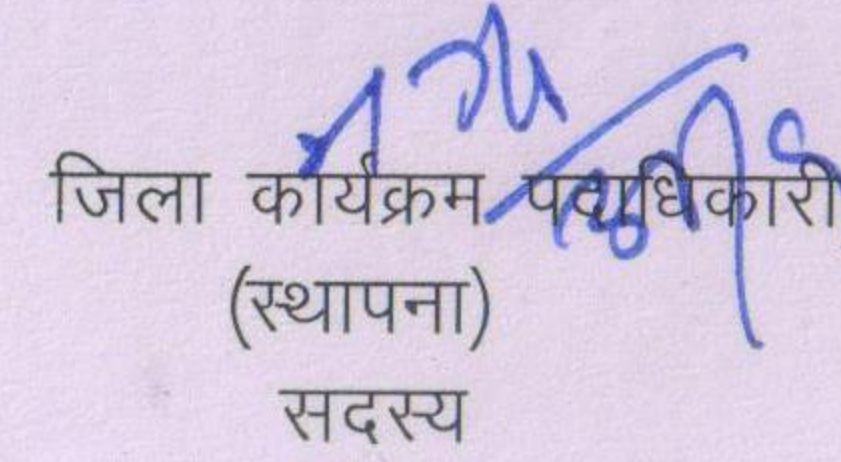 जिला कार्यक्रम पदाधिकारी
(स्थापना)
सदस्य